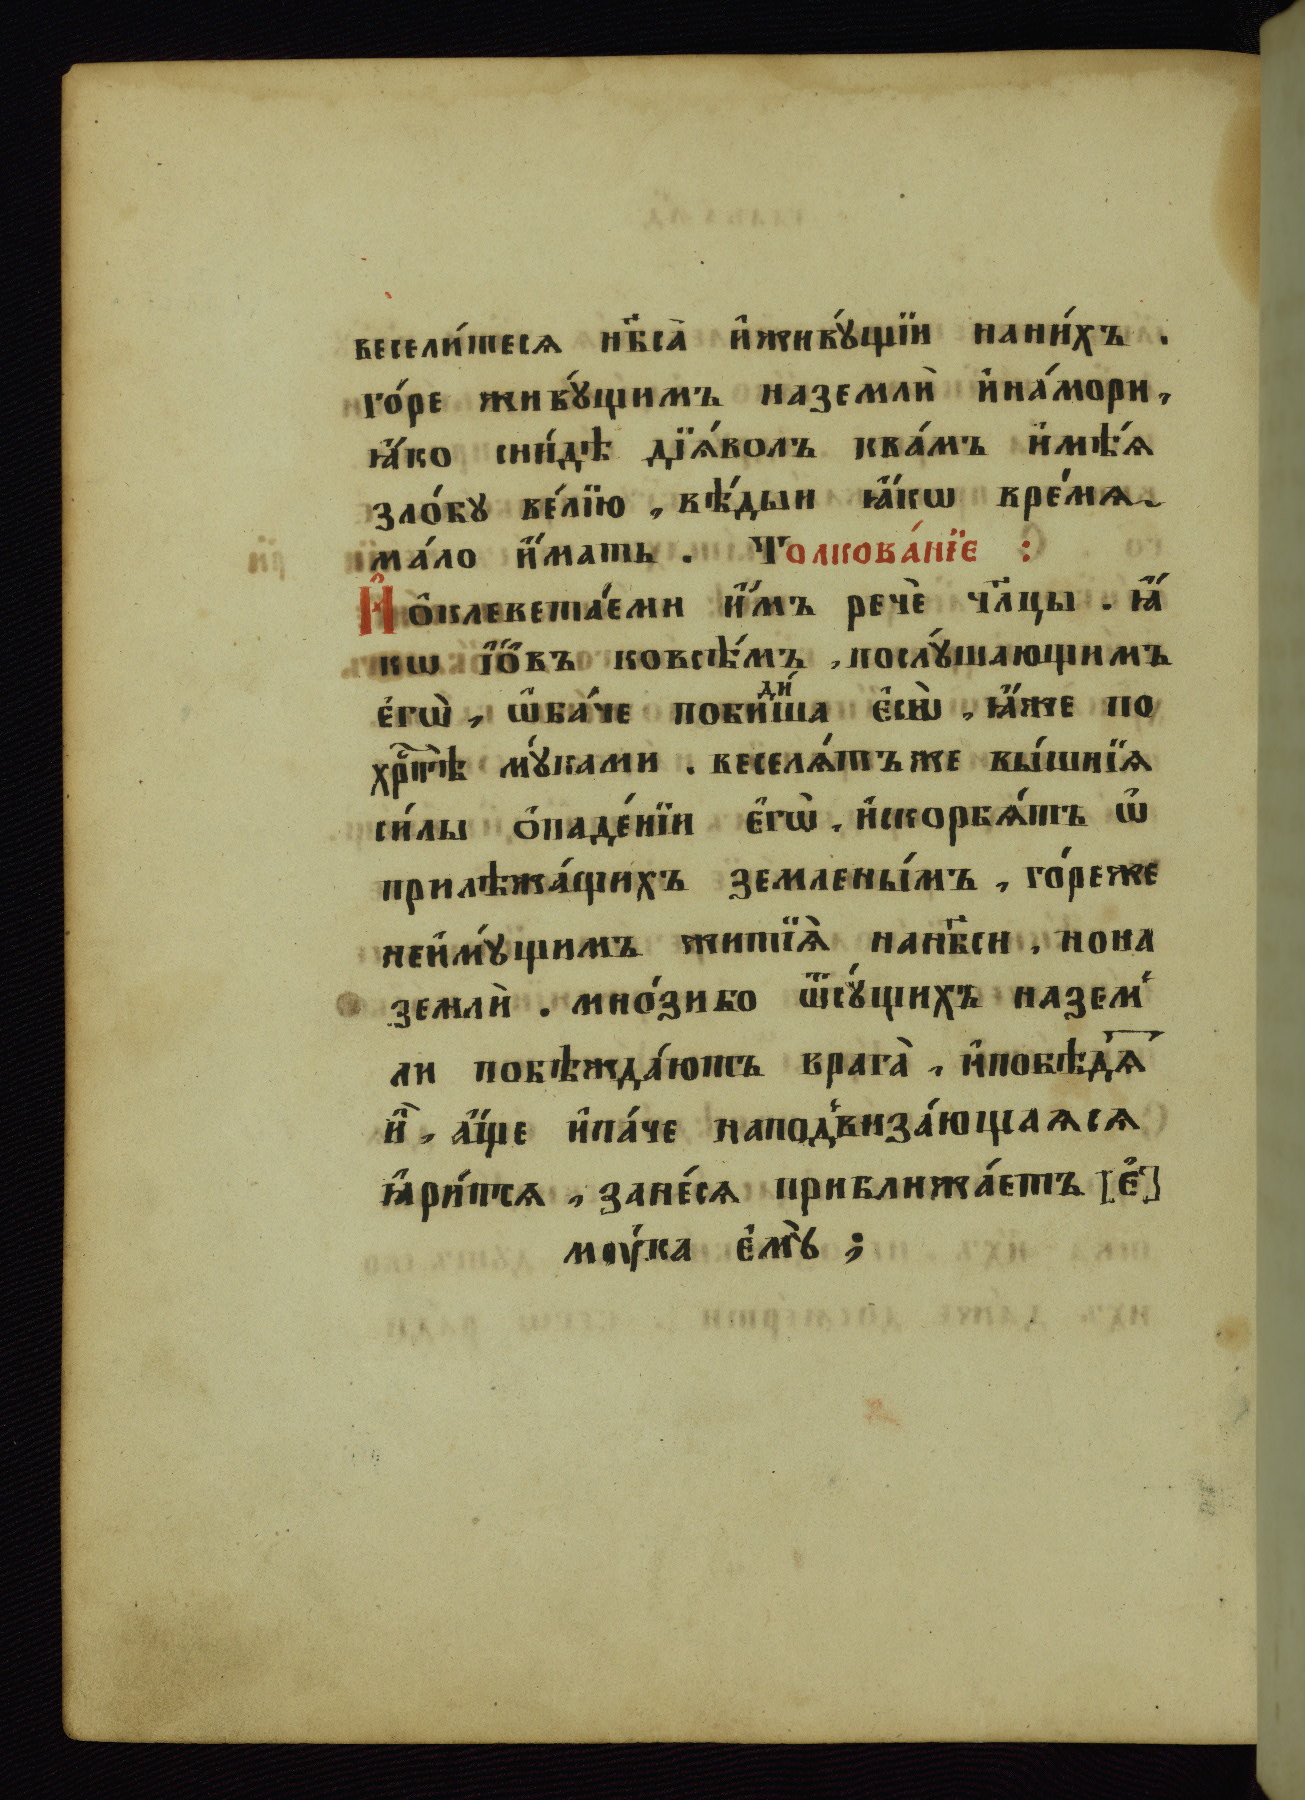 весели́тесѧ нб҃са̀ и҆живꙋ́щїи нани́хъ .
го́ре живꙋ́щимъ наземлѝ и҆на́мори ,
ꙗ҆́ко сни́дѣ дїѧ́волъ ква́мъ и҆мѣ́ѧ
зло́бꙋ ве́лїю , вѣ́дыи ꙗ҆́кѡ вре́мѧ
ма́ло и҆́мать . Толкова́нїе :
И҆ ѻ҆клевета́еми и҆́мъ рече̏ чл҃цы . ꙗ҆́
кѡ і҆ѻ҆́въ ковсѣ́мъ , послꙋ́шающимъ
є҆гѡ̀ , ѡ҆ба́че побиди́ша є҆сѡ̀ , ꙗ҆́же по
хрⷭ҇тѣ мꙋ́ками . веселѧ́тъже вы́шнїѧ
си́лы ѻ҆паде́нїи є҆гѡ̀ , и҆скорбѧ́тъ ѡ҆
прилѣжа́щихъ землены́мъ , го́реже
неи҆мꙋ́щимъ житїѧ̀ нанб҃си , нона
землѝ . мно́зибо ѿсꙋ́щихъ назем̾
ли побѣжда́ютъ врага̀ , и҆побѣдѧ҃
и҆̀ , а҆́ще и҆па́че напод̾виза́ющаѧсѧ
ꙗ҆ри́тсѧ , зане́сѧ приближа́етъ [є҆]
моу́ка є҆мꙋ̀ ;